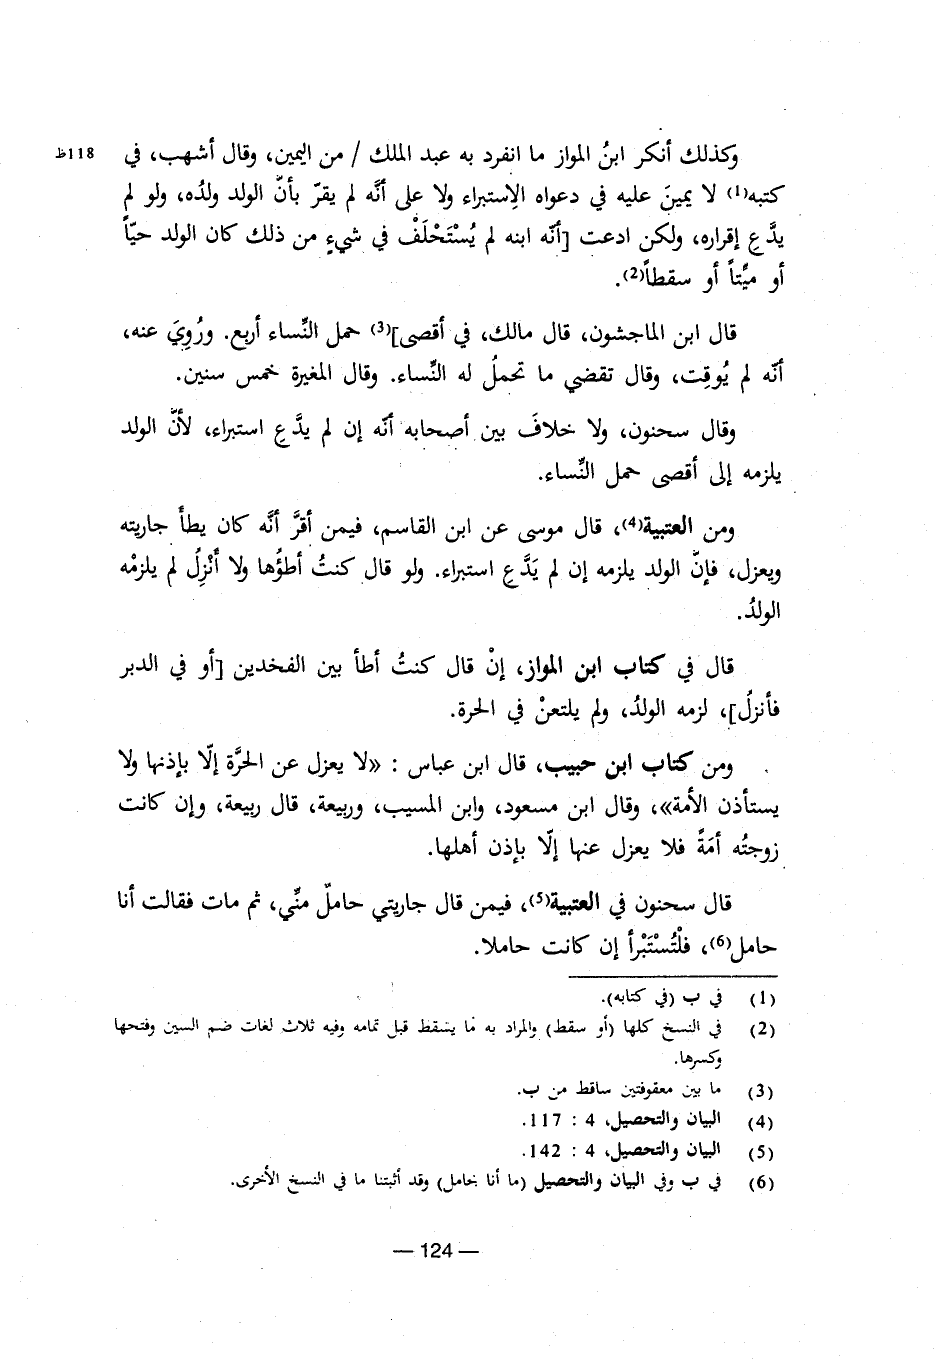 وكذلك أنكر ابنُ المواز ما انفرد به عبد الملك / من اليمين، وقال أشهب، في 118ظ
كتبه(1) لا يمينَ عليه في دعواه الاِستبراء ولا على أنَّه لم يقرّ بأنّ الولد ولدُه، ولو لم
يدَّعِ إقراره، ولكن ادعت [أنّه ابنه لم يُسْتَحْلَفْ في شيءٍ من ذلك كان الولد حيّاً
أو ميِّتاً أو سقطاً(2).
قال ابن الماجشون، قال مالك، في أقصى](3) حمل النِّساء أربع. ورُوِيَ عنه،
أنّه لم يُوقِت، وقال تقضي ما تحملُ له النِّساء. وقال المغيرة خمس سنين.
وقال سحنون، ولا خلافَ بين أصحابه أنّه إن لم يدَّعِ استبراء، لأنّ الولد
يلزمه إلى أقصى حمل النِّساء.
ومن العتبية(4)، قال موسى عن ابن القاسم، فيمن أقرَّ أنَّه كان يطأُ جاريته
ويعزل، فإنّ الولد يلزمه إن لم يَدَّعِ استبراء. ولو قال كنتُ أطؤُها ولا أُنْزِلُ لم يلزمْه
الولدُ.
قال في كتاب ابن المواز، إنْ قال كنتُ أطأ بين الفخدين [أو في الدبر
فأنزلُ]، لزمه الولدُ، ولم يلتعنْ في الحرة.
ومن كتاب ابن حبيب، قال ابن عباس : «لا يعزل عن الحرَّة إلّا بإذنها ولا
يستأذن الأمة»، وقال ابن مسعود، وابن المسيب، وربيعة، قال ربيعة، وإن كانت
زوجتُه أمَةً فلا يعزل عنها إلّا بإذن أهلها.
قال سحنون في العتبية(5)، فيمن قال جاريتي حاملٌ منِّي، ثم مات فقالت أنا
حامل(6)، فلْتُسْتَبْرأ إن كانت حاملا.
(1) في ب (في كتابه).
(2) في النسخ كلها (أو سقط) والمراد به ما يسقط قبل تمامه وفيه ثلاث لغات ضم السين وفتحها
وكسرها.
(3) ما بين معقوفتين ساقط من ب.
(4) البيان والتحصيل، 4 : 117.
(5) البيان والتحصيل، 4 : 142.
(6) في ب وفي البيان والتحصيل (ما أنا بحامل) وقد أثبتنا ما في النسخ الأخرى.
— 124 —